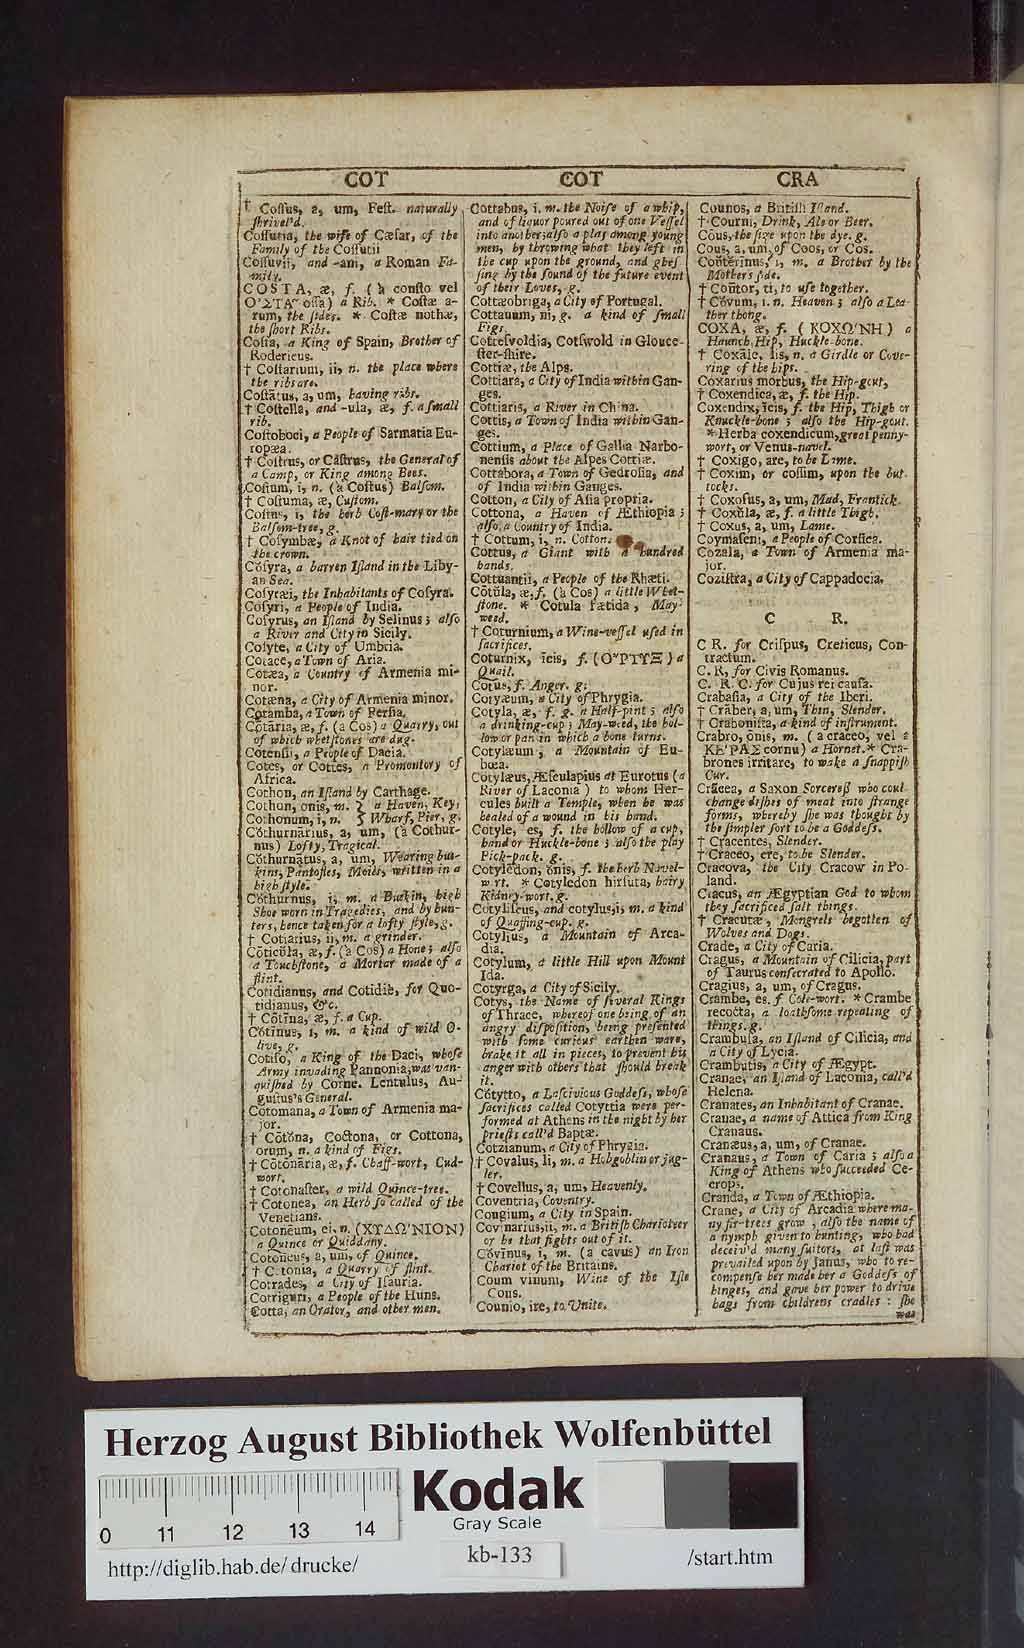 COT
† Coſſus, a, um, Feſt. naturally
ſhrivel'd.
Coſſutia, the wife of Cæſar, of the
Family of the Coſſutii
Coſſuvii, and -ani, a Roman Fa-
mily.
COSTA, æ, f. (à conſto vel
oſſa) a Rib. * Coſtæ a-
rum, the ſides. * Coſtæ nothæ,
the ſhort Ribs.
Coſta, a King of Spain, Brother of
Rodericus.
† Coſtarium, ii, n. the place where
the ribs are.
Coſtātus, a, um, having ribs.
† Coſtella, and -ula, æ, f. a ſmall
rib.
Coſtoboci, a People of Sarmatia Eu-
ropæa.
† Coſtrus, or Cāſtrus, the General of
a Camp, or King among Bees.
Coſtum, i, n. (à Coſtus) Balſom.
† Coſtuma, æ, Cuſtom.
Coſtus, i, the herb Coſt-mary or the
Balſom-tree, g.
† Coſymbæ, a Knot of hair tied on
the crown.
Cōſyra, a barren Iſland in the Liby-
an Sea.
Coſyræi, the Inhabitants of Coſyra.
Coſyri, a People of India.
Coſyrus, an Iſland by Selinus; alſo
a River and City in Sicily.
Coſyte, a City of Umbria.
Cotace, a Town of Aria.
Cotæa, a Country of Armenia mi-
nor.
Cotæna, a City of Armenia minor.
Cotamba, a Town of Perſia.
Cōtāria, æ, f. (a Cos) a Quarry, out
of which whetſtones are dug.
Cotenſii, a People of Dacia.
Cotes, or Cottes, a Promontory of
Africa.
Cothon, an Iſland by Carthage.
Cothon, onis, m. } a Haven, Key,
Cothonum, i, n. } Wharf, Pier, g.
Cōthurnārius, a, um, (à Cothur-
nus) Lofty, Tragical.
Cōthurnātus, a, um, Wearing bus-
kins, Pantofles, Moiles, written in a
high ſtyle.
Cōthurnus, i, m. a Buskin, high
Shoe worn in Tragedies, and by hun-
ters, hence taken for a lofty ſtyle, g.
† Cotiarius, ii, m. a grinder.
Cōticŭla, æ, f. (à Cos) a Hone; alſo
a Touchſtone, a Mortar made of a
flint.
Cotidianus, and Cotidiè, for Quo-
tidianus, &c.
† Cōtīna, æ, f. a Cup.
Cōtīnus, i, m. a kind of wild O-
live, g.
Cotiſo, a King of the Daci, whoſe
Army invading Pannonia, was van-
quiſhed by Corne. Lentulus, Au-
guſtus's General.
Cotomana, a Town of Armenia ma-
jor.
† Cōtŏna, Coctona, or Cottona,
orum, n. a kind of Figs.
† Cōtōnāria, æ, f. Chaff-wort, Cud-
wort.
† Cotonaſter, a wild Quince-tree.
† Cotonea, an Herb ſo called of the
Venetians.
Cotonēum, ei, n. (ΧΥΔΩ'ΝΙΟΝ)
a Quince or Quiddany.
Cotonĕus, a, um, of Quince.
† Cotonia, a Quarry of flint.
Cotrades, a City of Iſauria.
Cotriguri, a People of the Huns.
Cotta, an Orator, and other men.
COT
Cottabus, i. m. the Noiſe of a whip,
and of liquor poured out of one Veſſel
into another; alſo a play among young
men, by throwing what they left in
the cup upon the ground, and gheſ-
ſing by the ſound of the future event
of their Loves, g.
Cottæobriga, a City of Portugal.
Cottanum, ni, g. a kind of ſmall
Figs.
Cotteſvoldia, Cotſwold in Glouce-
ſter-ſhire.
Cottiæ, the Alps.
Cottiara, a City of India within Gan-
ges.
Cottiaris, a River in China.
Cottis, a Town of India within Gan-
ges.
Cottium, a Place of Gallia Narbo-
nenſis about the Alpes Cottiæ.
Cottabora, a Town of Gedroſia, and
of India within Ganges.
Cotton, a City of Aſia propria.
Cottona, a Haven of Æthiopia;
alſo, a Country of India.
† Cottum, i, n. Cotton.
Cottus, a Giant with a hundred
hands.
Cottuantii, a People of the Rhæti.
Cōtŭla, æ, f. (à Cos) a little Whet-
ſtone. * Cotula fætida, May-
weed.
† Coturnium, a Wine-veſſel uſed in
ſacrifices.
Coturnix, ĭcis, f. (Ο῎ΡΤΥΞ) a
Quail.
Cotus, f. Anger. g.
Cotyæum, a City of Phrygia.
Cotyla, æ, f. g. a Half-pint; alſo
a drinking-cup; May-weed, the hol-
low or pan in which a bone turns.
Cotylæum, a Mountain of Eu-
bœa.
Cotylæus, Æſculapius at Eurotus (a
River of Laconia) to whom Her-
cules built a Temple, when he was
healed of a wound in his hand.
Cotyle, es, f. the hollow of a cup,
hand or Huckle-bone; alſo the play
Pick-pack. g.
Cotylēdon, ōnis, f. the herb Navel-
wort. * Cotyledon hirſuta, hairy
Kidney-wort, g.
Cotyliſcus, and cotylus, i, m. a kind
of Quaffing-cup. g.
Cotylius, a Mountain of Arca-
dia.
Cotylum, a little Hill upon Mount
Ida.
Cotyrga, a City of Sicily.
Cotys, the Name of ſeveral Kings
of Thrace, whereof one being of an
angry diſpoſition, being preſented
with ſome curious earthen ware,
brake it all in pieces, to prevent his
anger with others that ſhould break
it.
Cōtytto, a Laſcivious Goddeſs, whoſe
ſacrifices called Cotyttia were per-
formed at Athens in the night by her
prieſts call'd Baptæ.
Cotzianum, a City of Phrygia.
† Covalus, li, m. a Hobgoblin or jug-
ler.
† Covellus, a, um, Heavenly.
Coventria, Coventry.
Cougium, a City in Spain.
Covinarius, ii, m. a Britiſh Charioteer
or he that fights out of it.
Cŏvīnus, i, m. (a cavus) an Iron
Chariot of the Britains.
Coum vinum, Wine of the Iſle
Cous.
Counio, ire, to Unite.
CRA
Counos, a Britiſh Iſland.
† Courni, Drink, Ale or Beer.
Cŏus, the ſize upon the dye. g.
Cous, a, um, of Coos, or Cos.
Couterinus, i, m. a Brother by the
Mothers ſide.
† Coūtor, ti, to uſe together.
† Cōvum, i. n. Heaven; alſo a Lea-
ther thong.
COXA, æ, f. (ΚΟΧΩ'ΝΗ) a
Haunch, Hip, Huckle-bone.
† Coxāle, lis, n. a Girdle or Cove-
ring of the hips.
Coxarius morbus, the Hip-gout,
† Coxendica, æ, f. the Hip.
Coxendix, ĭcis, f. the Hip, Thigh or
Knuckle-bone; alſo the Hip-gout.
* Herba coxendicum, great penny-
wort, or Venus-navel.
† Coxigo, are, to be Lame.
† Coxim, or coſſim, upon the but-
tocks.
† Coxoſus, a, um, Mad, Frantick.
† Coxŭla, æ, f. a little Thigh.
† Coxus, a, um, Lame.
Coymaſeni, a People of Corſica.
Cozala, a Town of Armenia ma-
jor.
Coziſtra, a City of Cappadocia.
C R.
C R. for Criſpus, Creticus, Con-
tractum.
C. R, for Civis Romanus.
C. R. C. for Cujus rei cauſa.
Crabaſia, a City of the Iberi.
† Crăber, a, um, Thin, Slender.
† Craboniſta, a kind of inſtrument.
Crabro, ōnis, m. (a craceo, vel a
ΚΕ'ΡΑΣ cornu) a Hornet. * Cra-
brones irritare, to wake a ſnappiſh
Cur.
Crăcea, a Saxon Sorcereß who coul
change diſhes of meat into ſtrange
forms, whereby ſhe was thought by
the ſimpler ſort to be a Goddeſs.
† Cracentes, Slender.
† Craceo, ere, to be Slender.
Cracova, the City Cracow in Po-
land.
Cracus, an Ægyptian God to whom
they ſacrificed ſalt things.
† Cracutæ, Mongrels begotten of
Wolves and Dogs.
Crade, a City of Caria.
Cragus, a Mountain of Cilicia, part
of Taurus conſecrated to Apollo.
Cragius, a, um, of Cragus.
Crambe, es. f Cole-wort. * Crambe
recocta, a loathſome repeating of
things. g.
Crambuſa, an Iſland of Cilicia, and
a City of Lycia.
Crambutis, a City of Ægypt.
Cranae, an Iſland of Laconia, call'd
Helena.
Cranates, an Inhabitant of Cranae.
Cranae, a name of Attica from King
Cranaus.
Cranæus, a, um, of Cranae.
Cranaus, a Town of Caria; alſo a
King of Athens who ſucceeded Ce-
crops.
Cranda, a Town of Æthiopia.
Crane, a City of Arcadia where ma-
ny fir-trees grow, alſo the name of
a nymph given to hunting, who had
deceiv'd many ſuitors, at laſt was
prevailed upon by Janus, who to re-
compenſe her made her a Goddeſs of
hinges, and gave her power to drive
hags from childrens cradles: ſhe
was
Herzog August Bibliothek Wolfenbüttel
0 11 12 13 14
Kodak
Gray Scale
http://diglib.hab.de/drucke/
kb-133
/start.htm